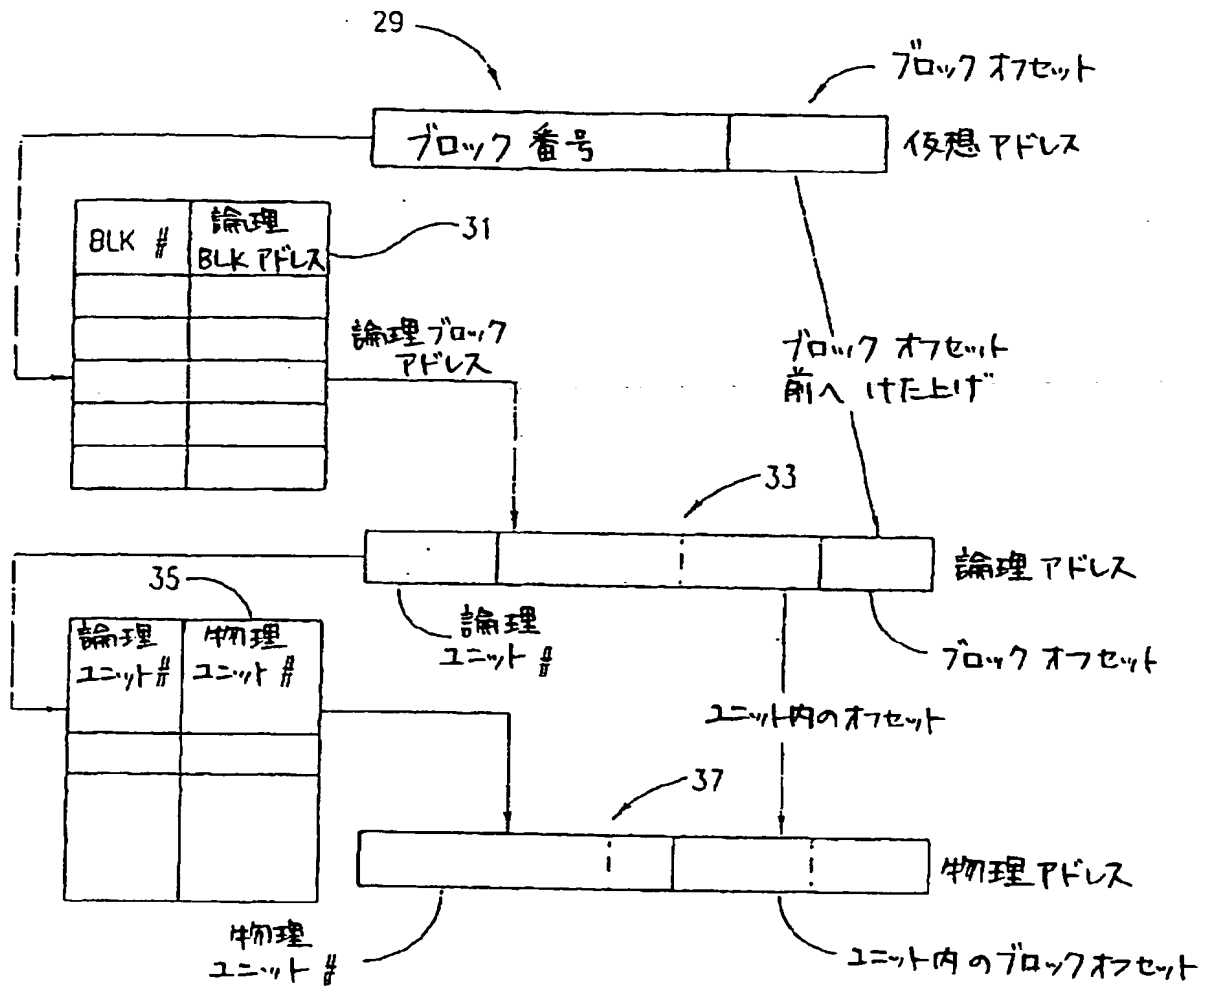 29
ブロック オフセット
ブロック 番号
仮想アドレス
BLK #
論理
BLK アドレス
31
論理ブロック
アドレス
ブロック オフセット
前へ けた上げ
33
論理アドレス
35
論理
ユニット #
ブロック オフセット
論理
ユニット#
物理
ユニット #
ユニット内のオフセット
37
物理アドレス
物理
ユニット #
ユニット内のブロックオフセット